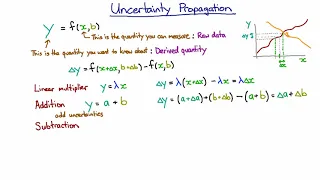 Uncertainty Propagation
y = f(x,b)
This is the quantity you can measure : Raw data
This is the quantity you want to know about : Derived quantity
Δy = f(x+Δx, b+Δb) - f(x,b)
Linear multiplier y = λx Δy = λ(x+Δx) - λx = λΔx
Addition y = a + b Δy = (a+Δa) + (b+Δb) - (a+b) = Δa + Δb
add uncertainties
Subtraction